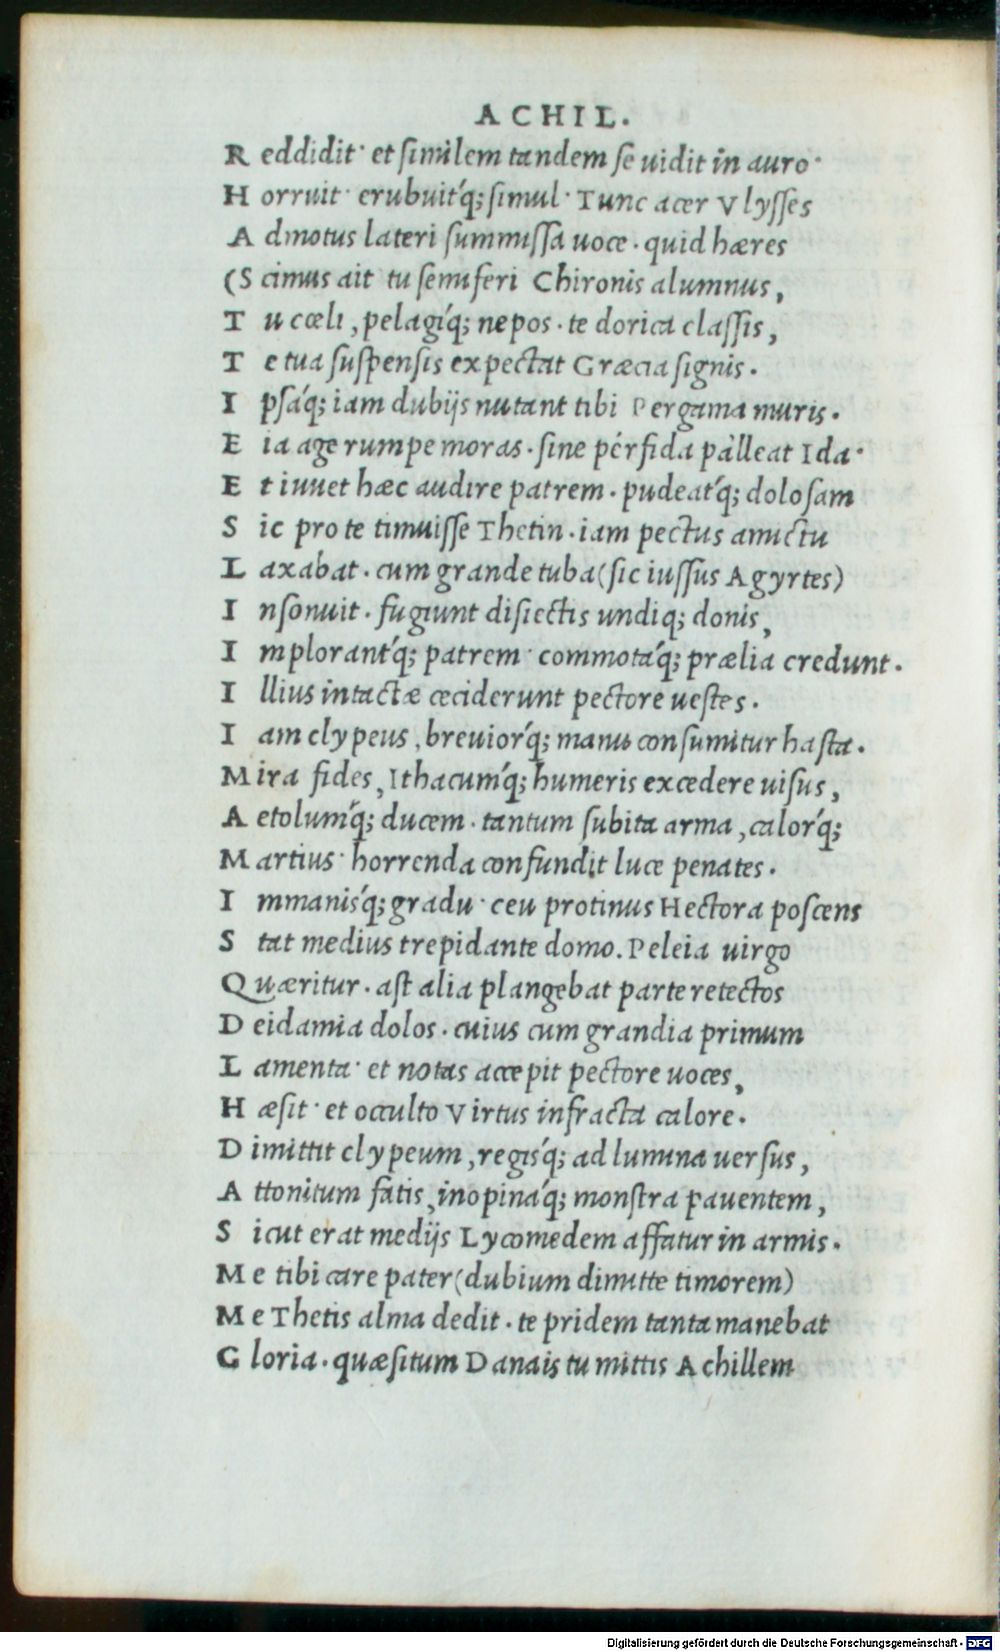 ACHIL.
Reddidit· et ſimilem tandem ſe uidit in auro·
Horruit· erubuit´q; ſimul· Tunc acer Vlyſſes
Admotus lateri ſummiſſa uoce. quid hæres
(Scimus ait tu ſemiferi Chironis alumnus,
Tu cœli, pelagi´q; nepos. te dorica claſſis,
Te tua ſuſpenſis expectat Græcia ſignis.
Ipſa´q; iam dubijs nutant tibi Pergama muris.
Eia age rumpe moras. ſine pérfida pàlleat Ida·
Et iuuet hæc audire patrem. pudeat´q; doloſam
Sic pro te timuiſſe Thetin. iam pectus amictu
Laxabat. cum grande tuba (ſic iuſſus Agyrtes)
Inſonuit. fugiunt diſiectis undiq; donis,
Implorant´q; patrem· commota´q; prælia credunt.
Illius intactæ ceciderunt pectore ueſtes.
Iam clypeus, breuior´q; manu conſumitur haſta.
Mira fides, Ithacum´q; humeris excedere uiſus,
Aetolum´q; ducem. tantum ſubita arma, calor´q;
Martius· horrenda confundit luce penates.
Immanis´q; gradu· ceu protinus Hectora poſcens
Stat medius trepidante domo. Peleia uirgo
Quæritur. aſt alia plangebat parte retectos
Deidamia dolos. cuius cum grandia primum
Lamenta· et notas accepit pectore uoces,
Hæſit· et occulto Virtus infracta calore.
Dimittit clypeum, regis´q; ad lumina uerſus,
Attonitum fatis, inopina´q; monſtra pauentem,
Sicut erat medijs Lycomedem affatur in armis.
Me tibi care pater (dubium dimitte timorem)
Me Thetis alma dedit. te pridem tanta manebat
Gloria. quæſitum Danais tu mittis Achillem
Digitalisierung gefördert durch die Deutsche Forschungsgemeinschaft - DFG